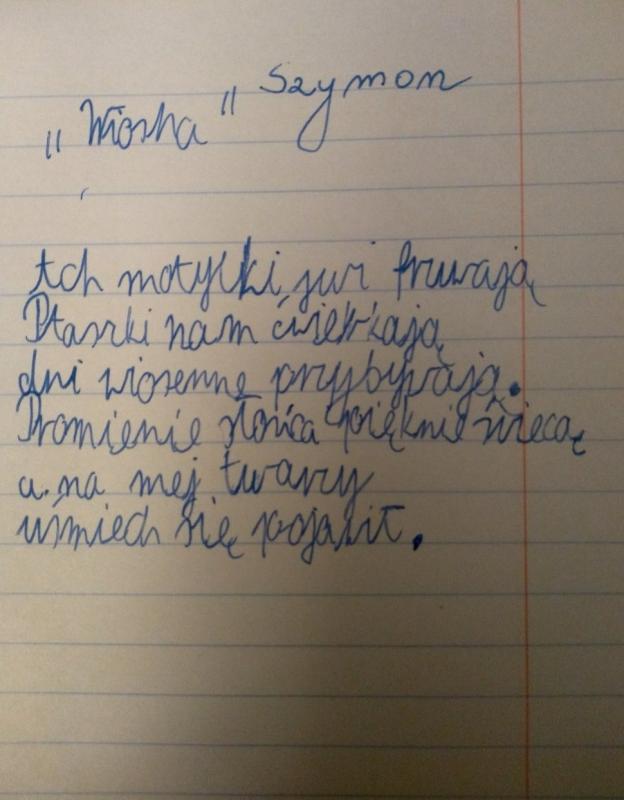 Szymon
„Wiosna"
Ach motylki już fruwają
Ptaszki nam ćwierkają
dni wiosenne przybywają.
Promienie słońca pięknie świecą
a na mej twarzy
uśmiech się pojawił.